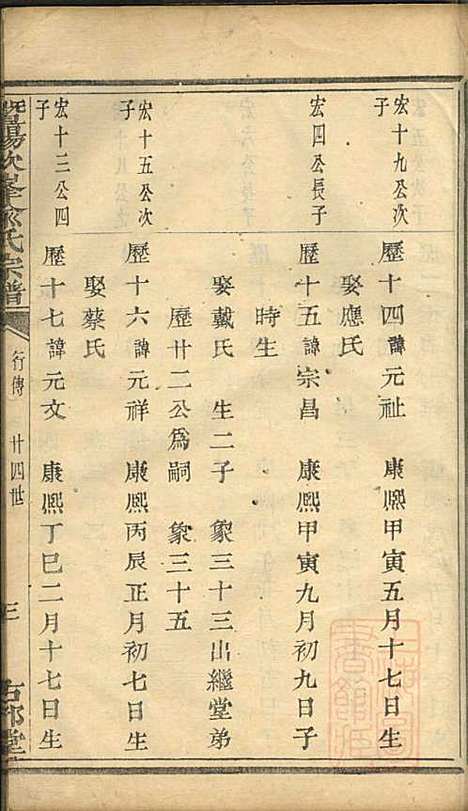 宏十九公次子
歷十四諱元祉 康熙甲寅五月十七日生
娶應氏
宏四公長子
歷十五諱宗昌 康熙甲寅九月初九日子
時生
娶戴氏 生二子 象三十三出繼堂弟
歷廿二公爲嗣 象三十五
宏十五公次子
歷十六諱元祥 康熙丙辰正月初七日生
娶蔡氏
宏十三公四子
歷十七諱元文 康熙丁巳二月十七日生
暨陽次峯俞氏宗譜 行傳 廿四世 三